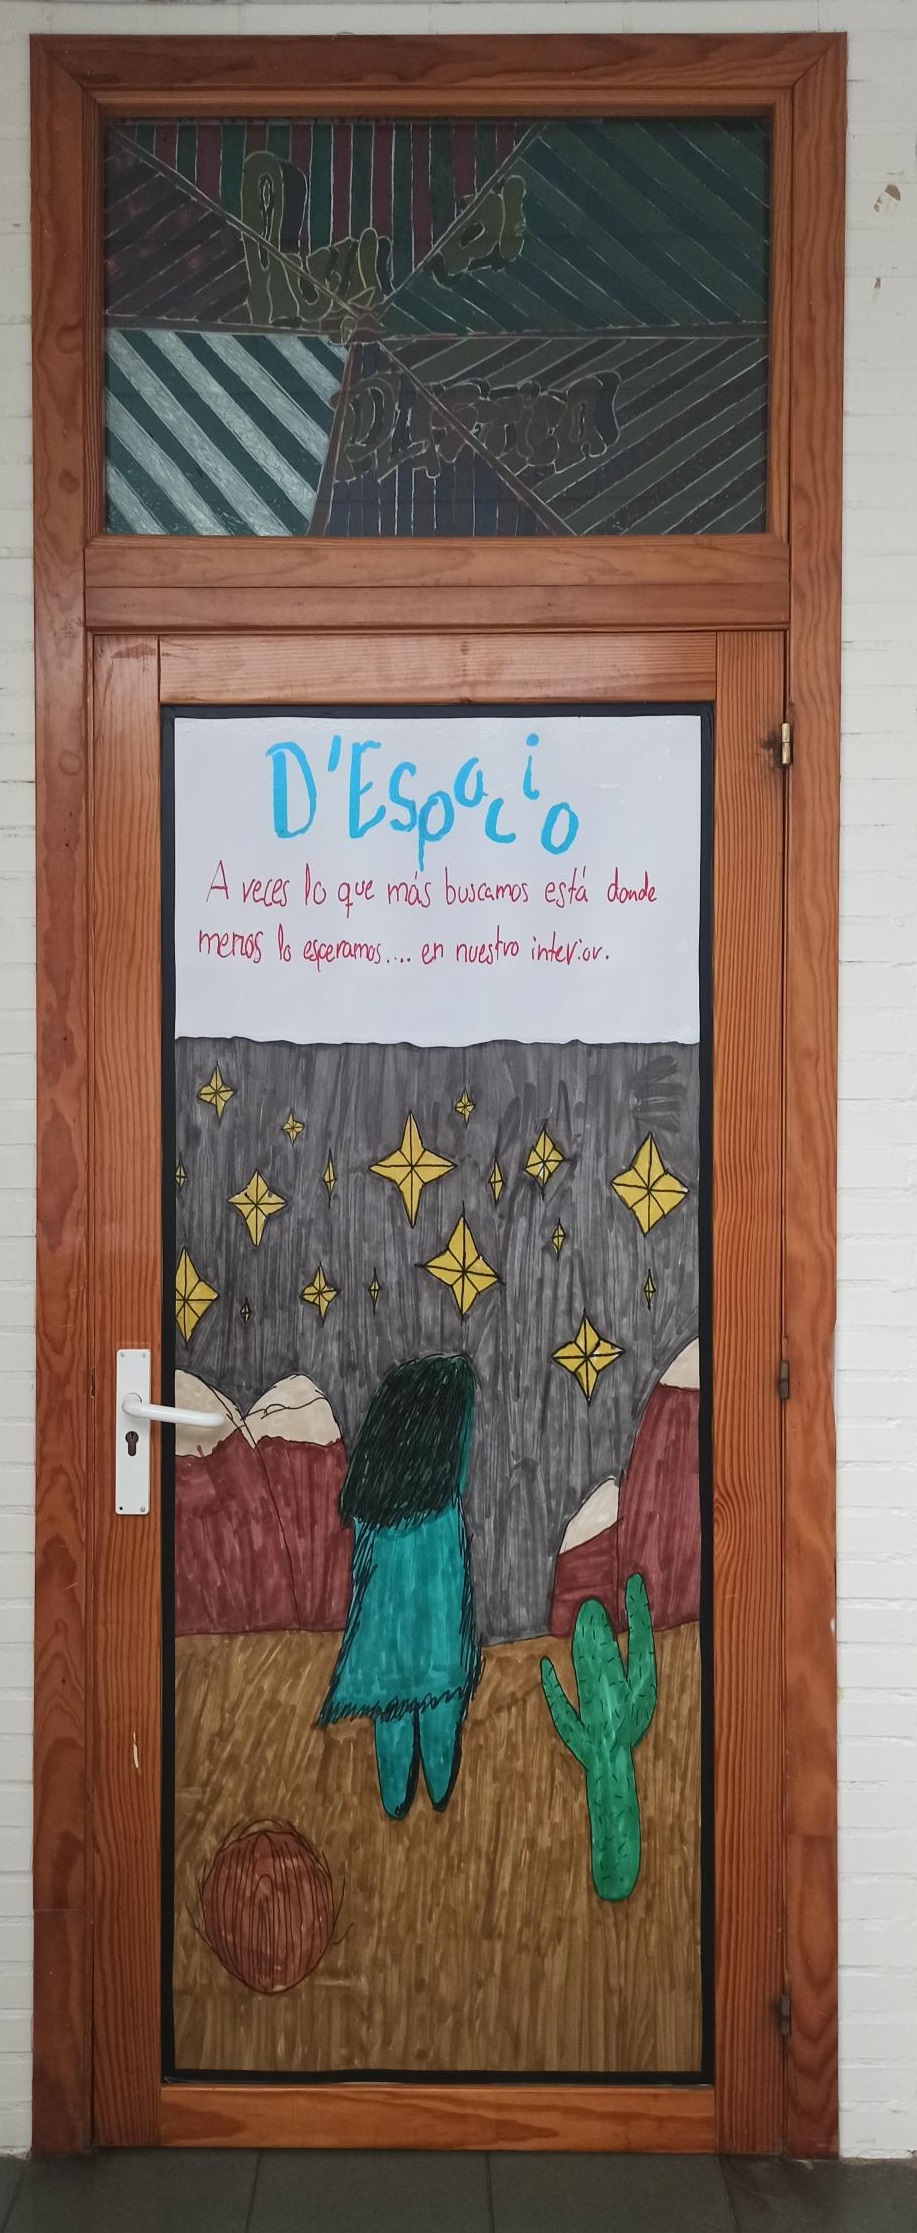 Aula de
Plástica
D'Espacio
A veces lo que más buscamos está donde
menos lo esperamos.... en nuestro interior.